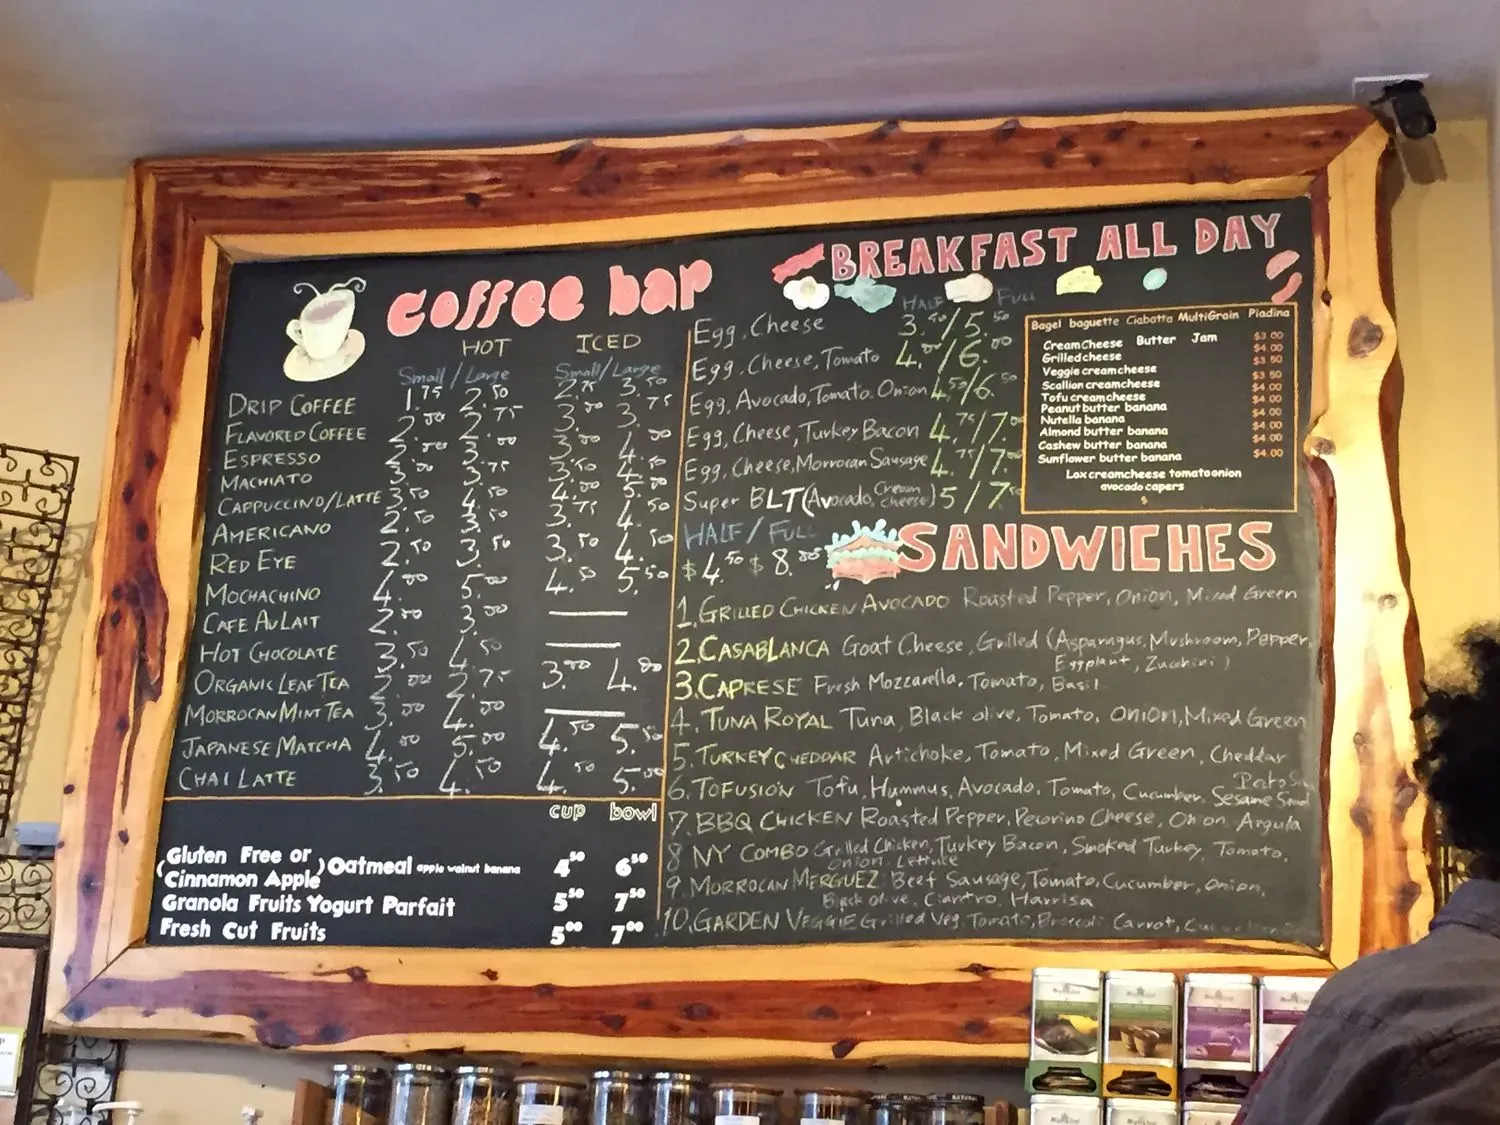 coffee bar
HOT ICED
Small/Large Small/Large
DRIP COFFEE 1.75 2.50 2.75 3.50
FLAVORED COFFEE 2.00 2.75 3.00 3.75
ESPRESSO 2.00 3.00 3.00 4.00
MACHIATO 3.00 3.75 3.50 4.50
CAPPUCCINO/LATTE 3.50 4.50 4.00 5.00
AMERICANO 2.50 3.50 3.75 4.50
RED EYE 2.50 3.50 3.50 4.50
MOCHACHINO 4.00 5.00 4.50 5.50
CAFE AU LAIT 2.00 3.00
HOT CHOCOLATE 3.50 4.50
ORGANIC LEAF TEA 2.00 2.75 3.00 4.00
MORROCAN MINT TEA 3.00 4.00
JAPANESE MATCHA 4.00 5.00 4.50 5.50
CHAI LATTE 3.50 4.50 4.50 5.00
cup bowl
(Gluten Free or
Cinnamon Apple) Oatmeal apple walnut banana 4.50 6.50
Granola Fruits Yogurt Parfait 5.50 7.50
Fresh Cut Fruits 5.00 7.00
BREAKFAST ALL DAY
HALF FULL
Egg, Cheese 3.50/5.50
Egg, Cheese, Tomato 4.00/6.00
Egg, Avocado, Tomato, Onion 4.50/6.50
Egg, Cheese, Turkey Bacon 4.75/7.00
Egg, Cheese, Morrocan Sausage 4.75/7.00
Super BLT (Avocado, Cream cheese) 5/7.50
Bagel baguette Ciabatta MultiGrain Piadina
Cream Cheese Butter Jam $3.00
Grilled cheese $4.00
Veggie cream cheese $3.50
Scallion cream cheese $3.50
Tofu cream cheese $4.00
Peanut butter banana $4.00
Nutella banana $4.00
Almond butter banana $4.00
Cashew butter banana $4.00
Sunflower butter banana $4.00
Lox cream cheese tomato onion
avocado capers
$
HALF/FULL
$4.50 $8.00
SANDWICHES
1. GRILLED CHICKEN AVOCADO Roasted Pepper, Onion, Mixed Green
2. CASABLANCA Goat Cheese, Grilled (Asparagus, Mushroom, Pepper,
Eggplant, Zucchini)
3. CAPRESE Fresh Mozzarella, Tomato, Basil
4. TUNA ROYAL Tuna, Black olive, Tomato, Onion, Mixed Green
5. TURKEY CHEDDAR Artichoke, Tomato, Mixed Green, Cheddar
6. TOFUSION Tofu, Hummus, Avocado, Tomato, Cucumber, Sesame
7. BBQ CHICKEN Roasted Pepper, Pecorino Cheese, Onion Argula
8 NY COMBO Grilled Chicken, Turkey Bacon, Smoked Turkey, Tomato,
Onion, Lettuce
9. MORROCAN MERGUEZ Beef Sausage, Tomato, Cucumber, Onion,
Black olive, Ciantro, Harrisa
10. GARDEN VEGGIE Grilled Veg, Tomato, Broccoli Carrot,